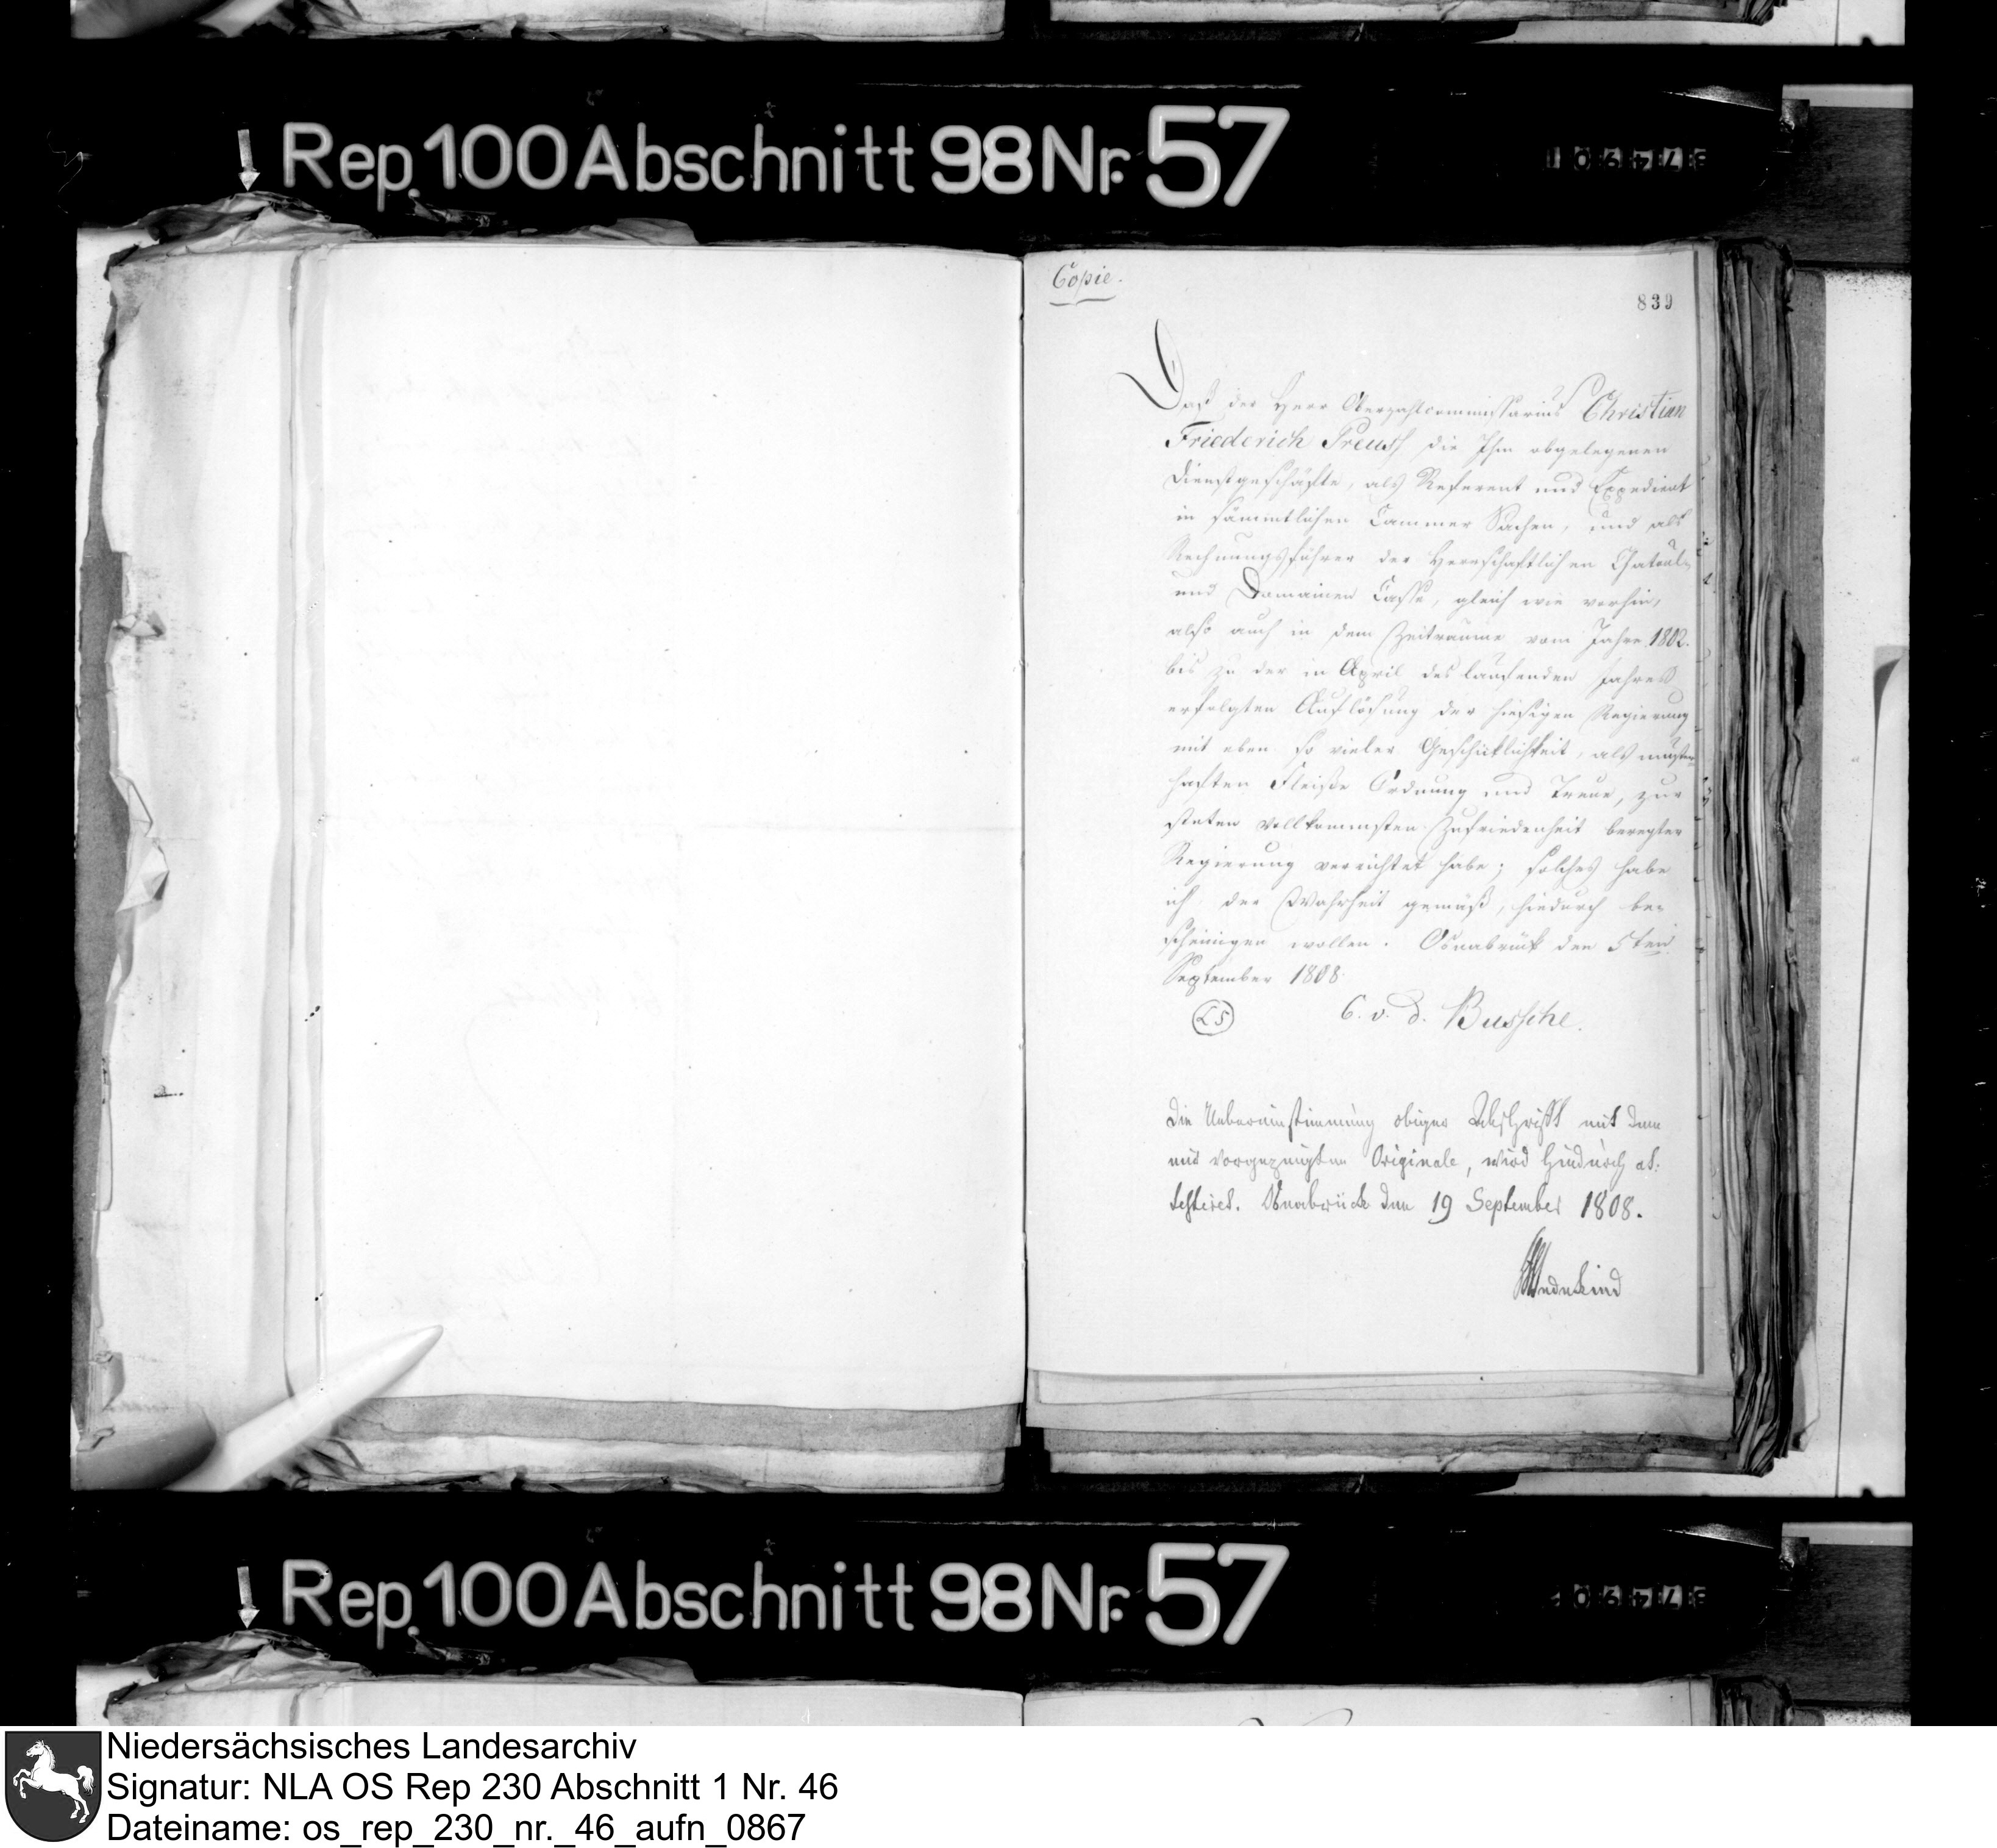 Rep. 100 Abschnitt 98 Nr. 57
Copie.
839
Daß der Herr Oberzahlcommissarius Christian
Friederich Preuss die Ihm obgelegenen
Dienstgeschäfte, als Referent und Expedient
in sämmtlichen Cammer Sachen, und als
Rechnungsführer der Herrschaftlichen Chatoul-
und Domainen Casse, gleich wie vorhin,
also auch in dem Zeitraume vom Jahre 1802.
bis zu der in April des laufenden Jahres
erfolgten Auflösung der hiesigen Regierung
mit eben so vieler Geschicklichkeit, als muster-
haften Fleiße Ordnung und Treue, zur
steten vollkommsten Zufriedenheit beregter
Regierung verrichtet habe; solches habe
ich der Wahrheit gemäß, hiedurch be-
scheinigen wollen. Osnabrück den 5ten
September 1808.
LS
C. v. d. Bussche.
Die Uebereinstimmung obiger Abschrift mit dem
mir vorgezeigten Originale, wird hiedurch at-
testiret. Osnabrück den 19 September 1808.
Wedekind
Rep. 100 Abschnitt 98 Nr. 57
Niedersächsisches Landesarchiv
Signatur: NLA OS Rep 230 Abschnitt 1 Nr. 46
Dateiname: os_rep_230_nr._46_aufn_0867